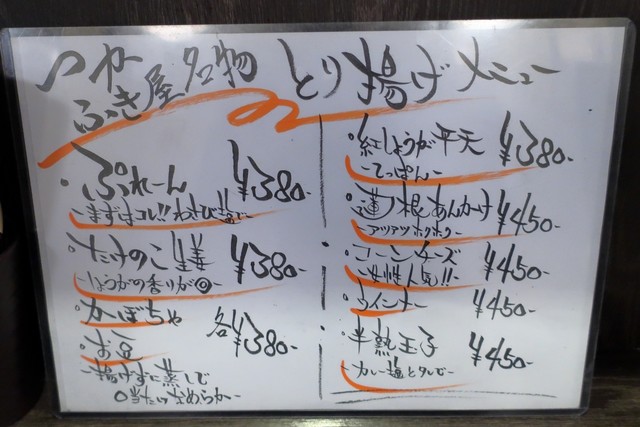 つか
ふき屋名物 とり揚げメニュー
・ぷれーん ¥380-
-まずはコレ!!わさび塩で-
・たけのこ生姜 ¥380-
-しょうがの香りが◎-
・かぼちゃ
・お豆 各¥380-
-揚げずに蒸して
当たいなめらか-
・紅しょうが平天 ¥380-
-てっぱん-
・蓮根あんかけ ¥450-
-アツアツホクホク-
・コーンチーズ ¥450-
-女性人気!!-
・ウインナー ¥450-
・半熟玉子 ¥450-
-カレー塩とタレで-